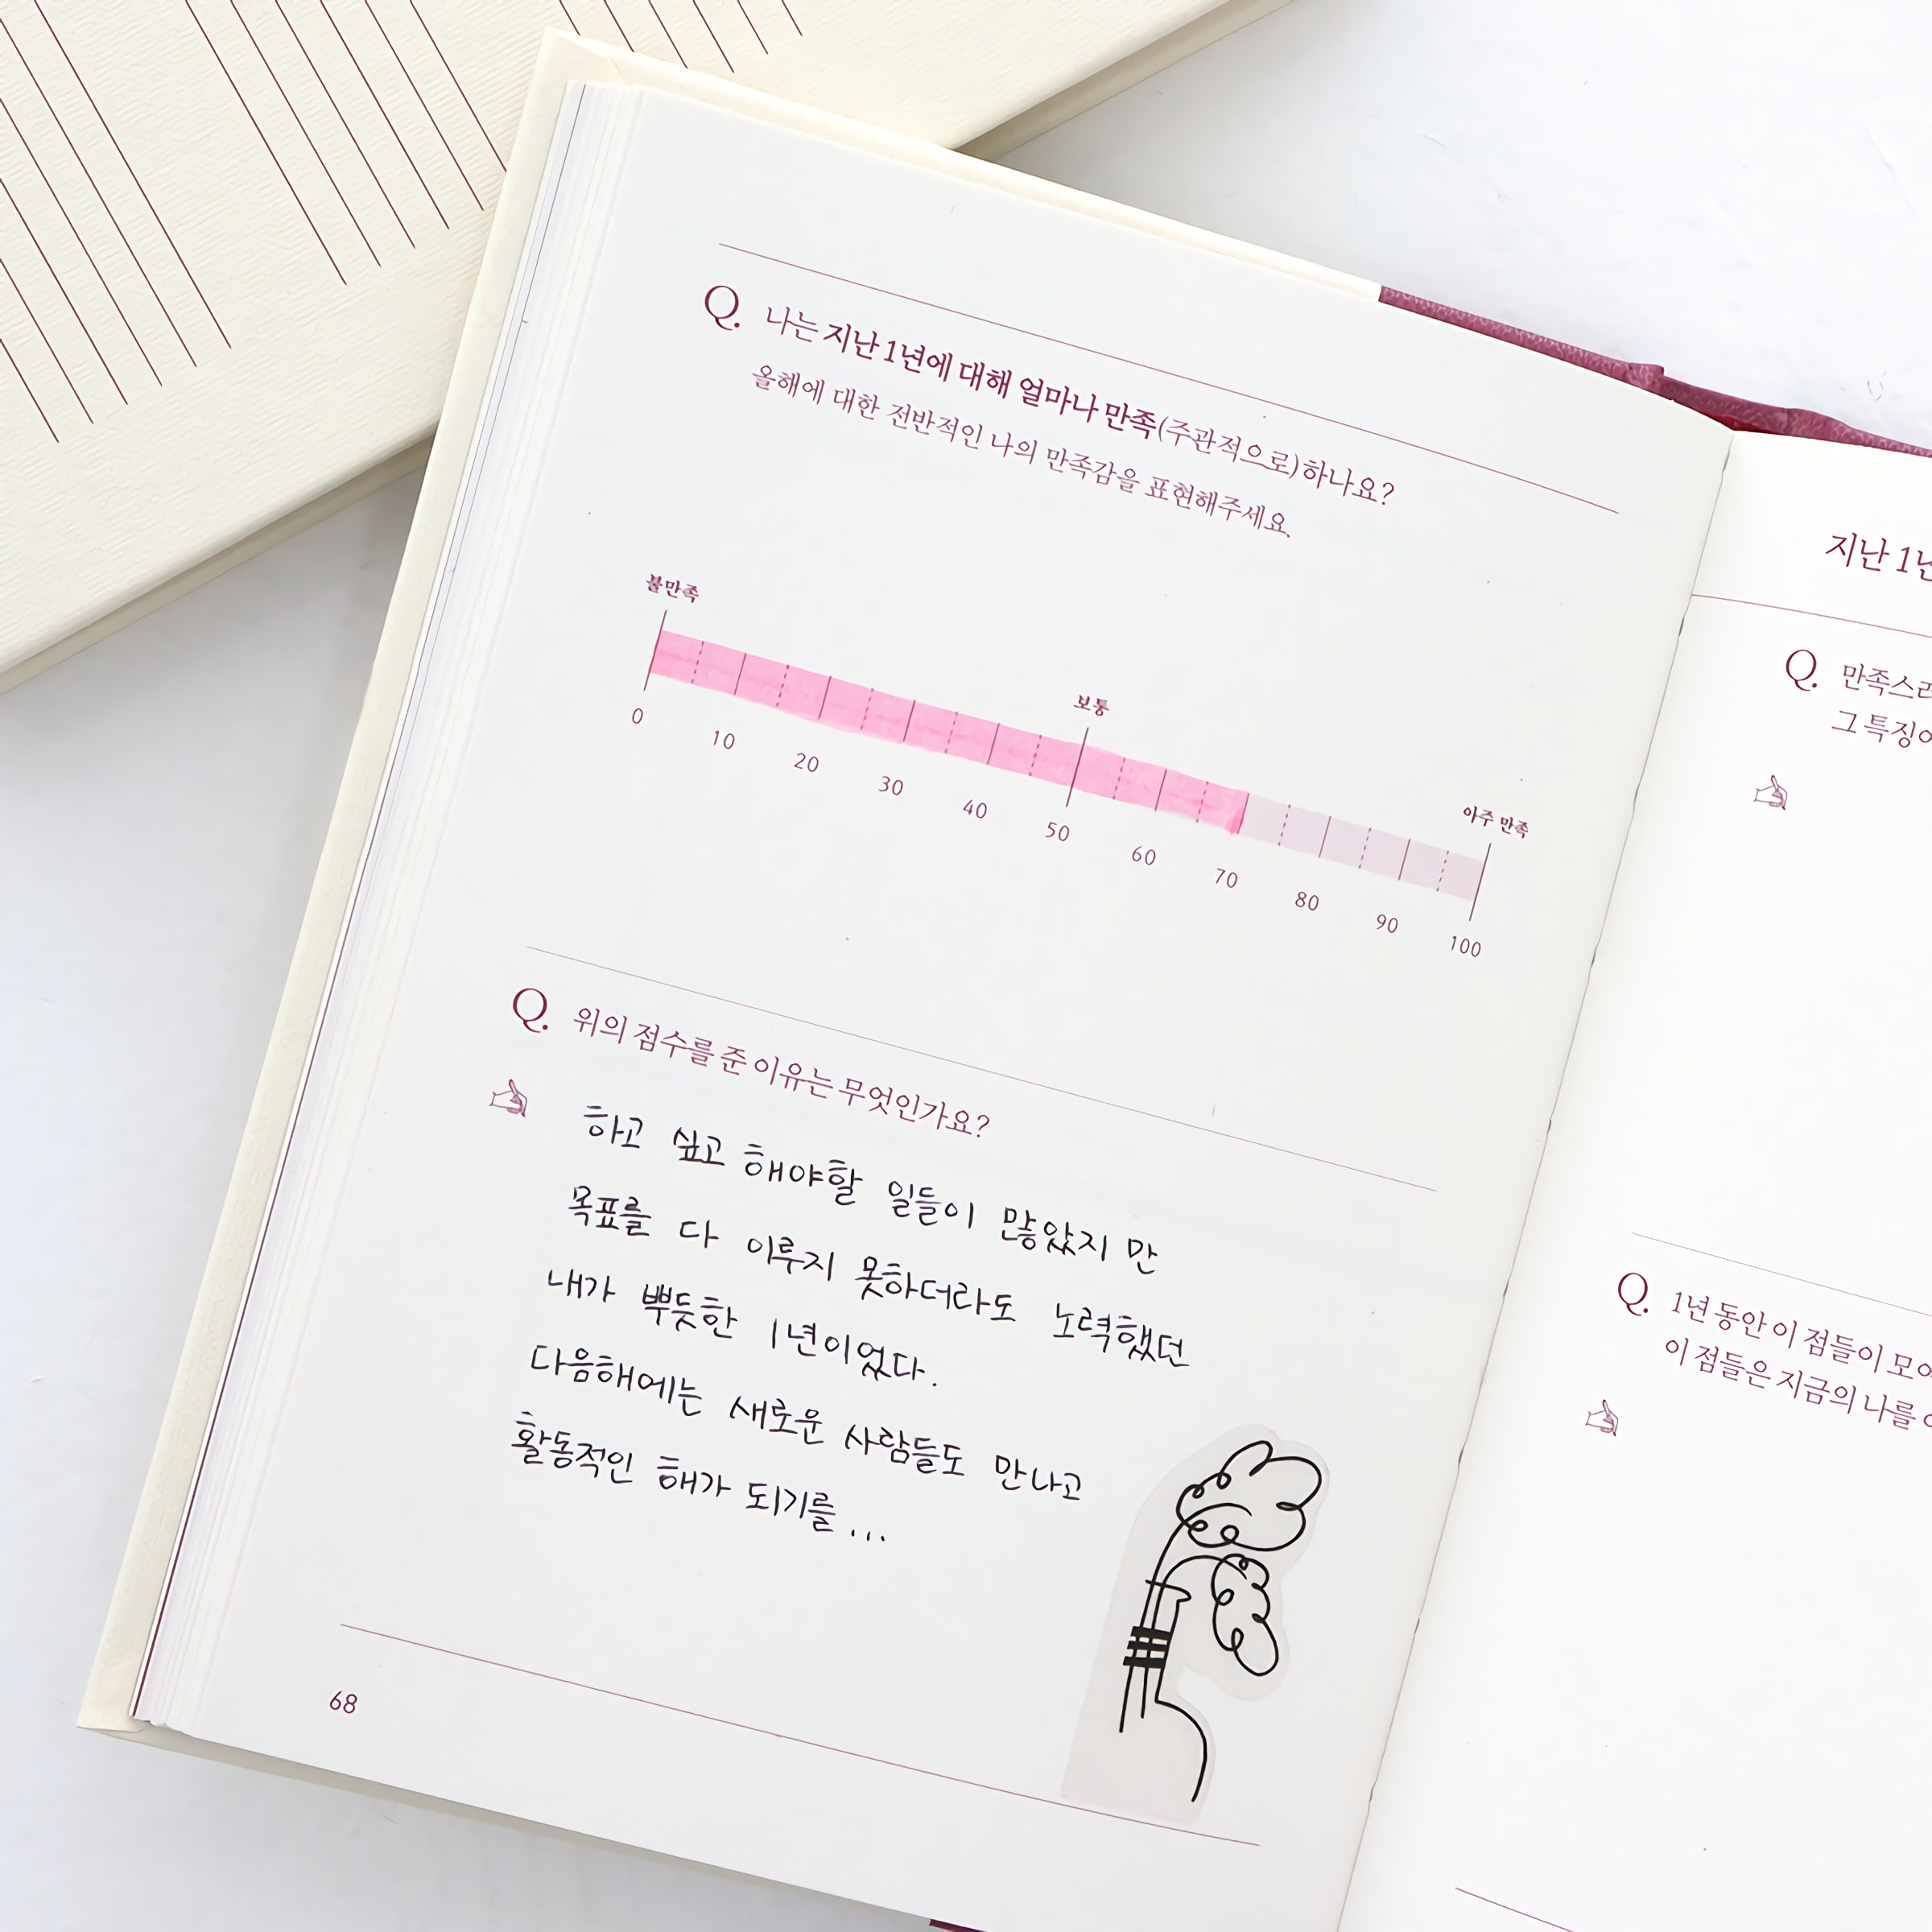 Q. 나는 지난 1년에 대해 얼마나 만족(주관적으로)하나요?
올해에 대한 전반적인 나의 만족감을 표현해주세요.
불만족
보통
아주 만족
0 10 20 30 40 50 60 70 80 90 100
Q. 위의 점수를 준 이유는 무엇인가요?
하고 싶고 해야할 일들이 많았지 만
목표를 다 이루지 못하더라도 노력했던
내가 뿌듯한 1년이었다.
다음해에는 새로운 사람들도 만나고
활동적인 해가 되기를...
68
지난 1년
Q. 만족스러
그 특징이
Q. 1년 동안 이 점들이 모여
이 점들은 지금의 나를